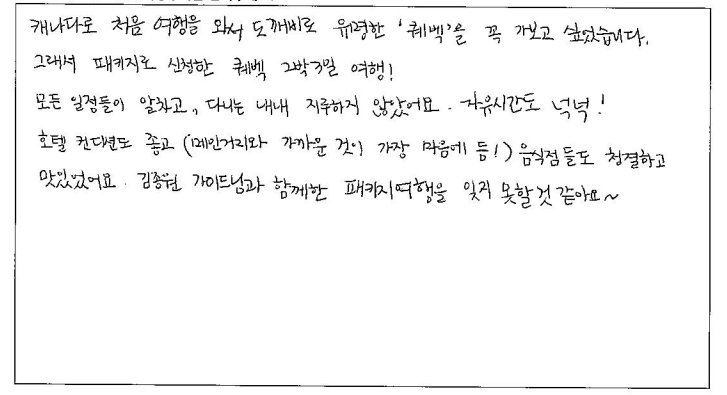 캐나다로 처음 여행을 와서 도깨비로 유명한 '퀘벡'을 꼭 가보고 싶었습니다.
그래서 패키지로 신청한 퀘벡 2박3일 여행!
모든 일정들이 알차고, 다니는 내내 지루하지 않았어요. 자유시간도 넉넉!
호텔 컨디션도 좋고 (메인거리와 가까운 것이 가장 마음에 듬!) 음식점들도 청결하고
맛있었어요. 김종원 가이드님과 함께한 패키지여행을 잊지 못할 것 같아요~